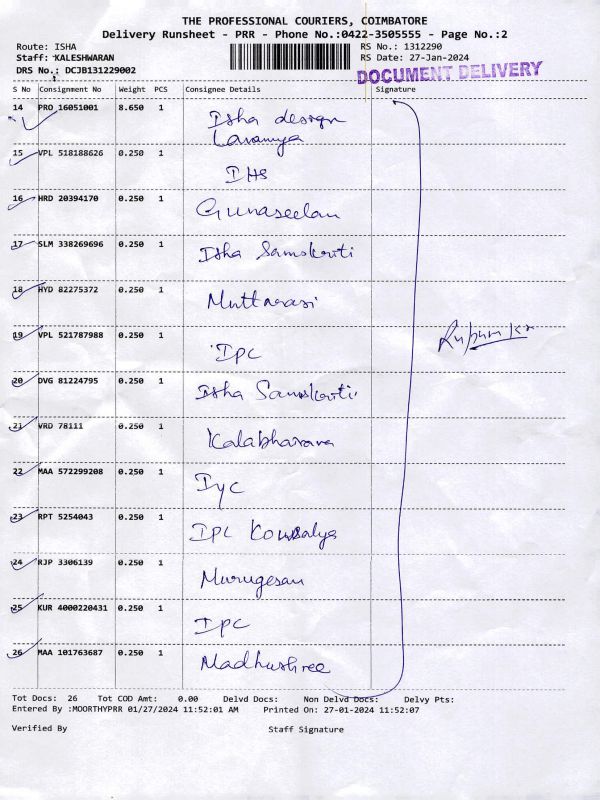 THE PROFESSIONAL COURIERS, COIMBATORE
Delivery Runsheet - PRR - Phone No.:0422-3505555 - Page No.:2
Route: ISHA RS No.: 1312290
Staff: KALESHWARAN RS Date: 27-Jan-2024
DRS No.: DCJB131229002
DOCUMENT DELIVERY
S No Consignment No Weight PCS Consignee Details Signature
14 PRO 16051001 8.650 1 Isha design
Lavanya
15 VPL 518188626 0.250 1 IHS
16 HRD 20394170 0.250 1 Gunaseelan
17 SLM 338269696 0.250 1 Isha Samskriti
18 HYD 82275372 0.250 1 Muttarasi
19 VPL 521787988 0.250 1 IPC
20 DVG 81224795 0.250 1 Isha Samskriti
21 VRD 78111 0.250 1 Kalabharava
22 MAA 572299208 0.250 1 IYC
23 RPT 5254043 0.250 1 IPC Kousalya
24 RJP 3306139 0.250 1 Murugesan
25 KUR 4000220431 0.250 1 IPC
26 MAA 101763687 0.250 1 Madhushree
Tot Docs: 26 Tot COD Amt: 0.00 Delvd Docs: Non Delvd Docs: Delvy Pts:
Entered By :MOORTHYPRR 01/27/2024 11:52:01 AM Printed On: 27-01-2024 11:52:07
Verified By Staff Signature